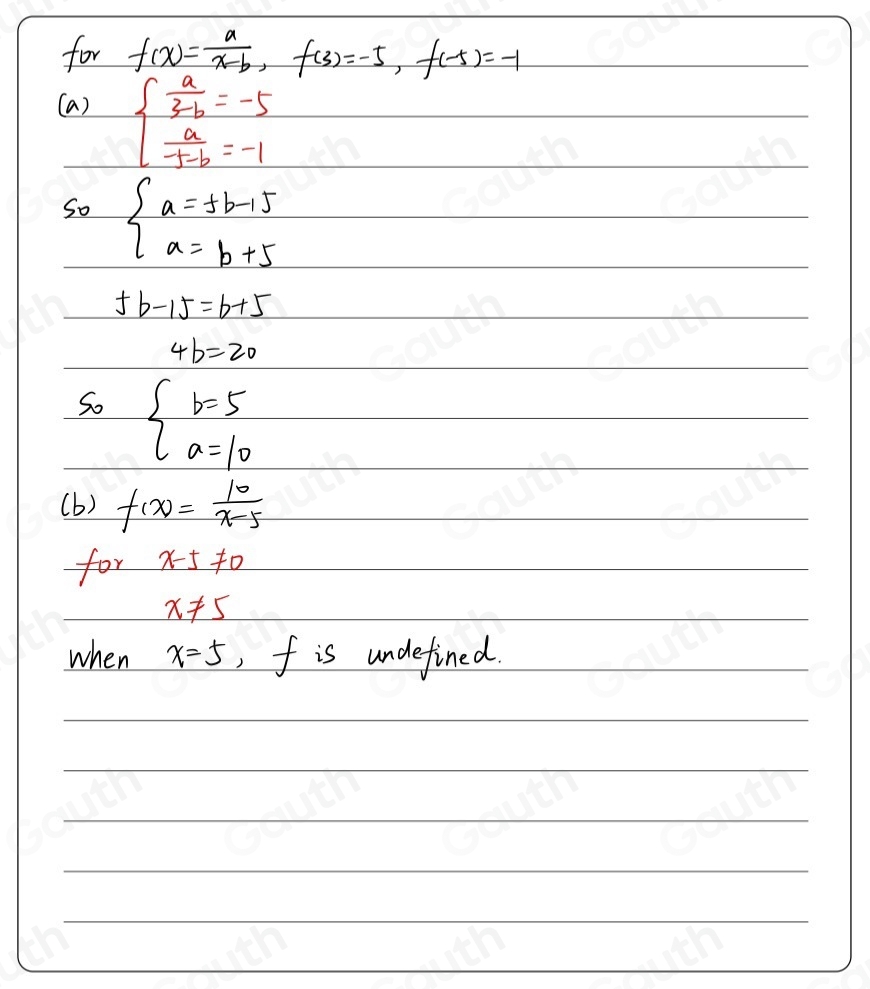 for f(x)=a/(x-b), f(3)=-5, f(-5)=-1
(a) { a/(3-b) = -5
a/(-5-b) = -1
so { a=5b-15
a= b+5
5b-15=b+5
4b=20
So { b=5
a=10
(b) f(x)= 10/(x-5)
for x-5≠0
x≠5
when x=5, f is undefined.
Gauth